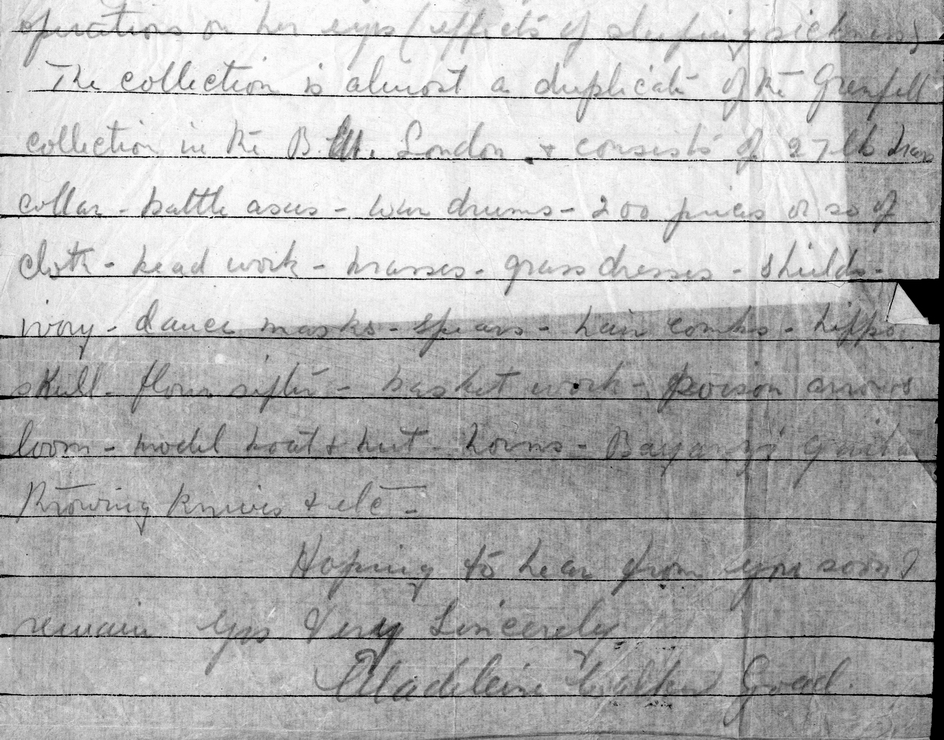 operations on her eyes (effects of sleeping sickness)
The collection is almost a duplicate of the Grenfell
collection in the B.M. London & consists of 27 lb brass
collar - battle axes - war drums - 200 pieces or so of
cloth - bead work - brasses - grass dresses - shields -
ivory - dance masks - spears - hair combs - hippo
skull - flour sifter - basket work - poison arrows
loom - model boat & hut - horns - Bayanzi guitar
throwing knives & etc -
Hoping to hear from you soon I
remain Yrs Very Sincerely
Madeleine Good